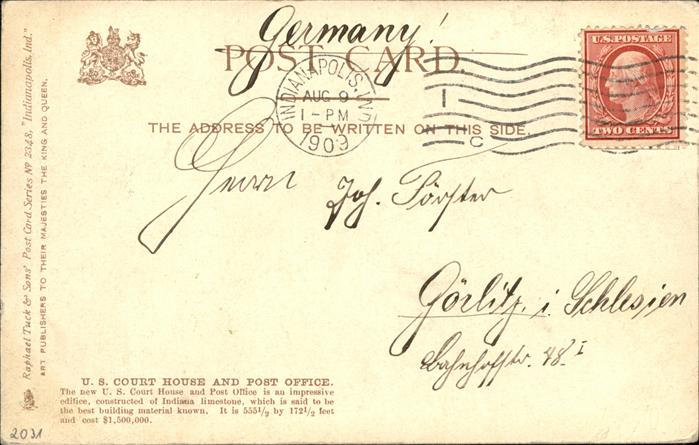 Germany!
POST CARD.
INDIANAPOLIS, IND.
AUG 9
1-PM
1909
1
C
U.S. POSTAGE
TWO CENTS
THE ADDRESS TO BE WRITTEN ON THIS SIDE.
Herrn Joh. Förster
Görlitz, i. Schlesien
Bahnhofstr. 48 I
Raphael Tuck & Sons' Post Card Series Nº 2348, "Indianapolis, Ind."
ART PUBLISHERS TO THEIR MAJESTIES THE KING AND QUEEN.
U. S. COURT HOUSE AND POST OFFICE.
The new U. S. Court House and Post Office is an impressive
edifice, constructed of Indiana limestone, which is said to be
the best building material known. It is 555½ by 172½ feet
and cost $1,500,000.
2031